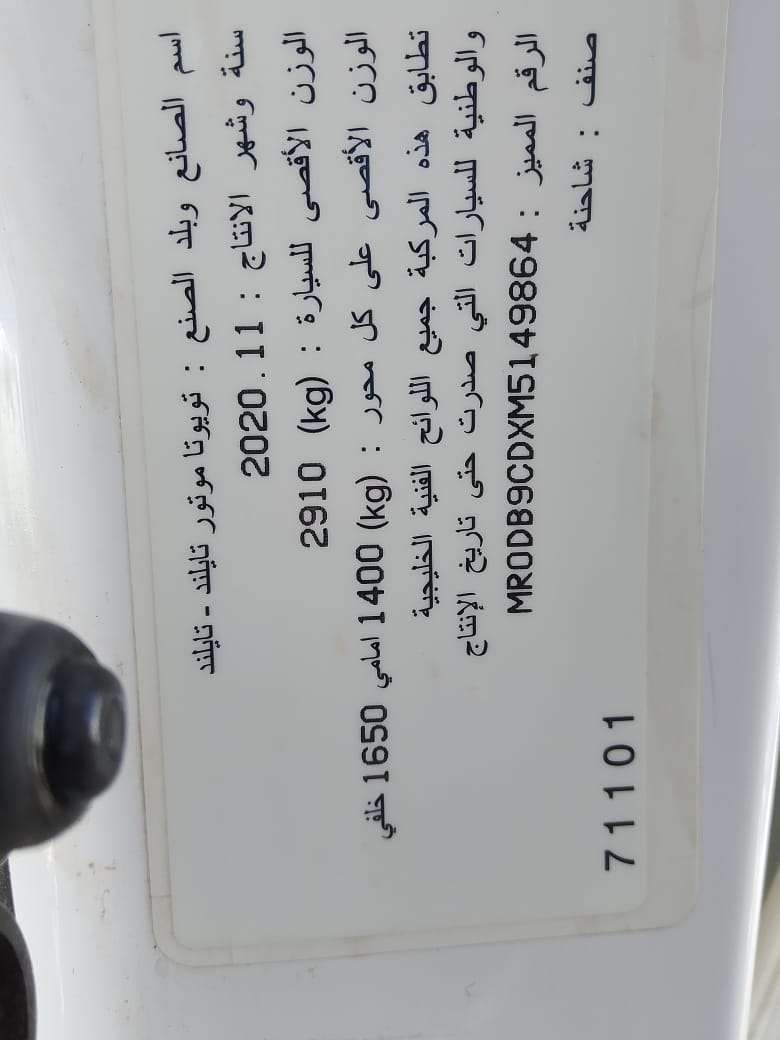 اسم الصانع وبلد الصنع : تويوتا موتور تايلند - تايلند
سنة وشهر الانتاج : 2020.11
الوزن الأقصى للسيارة : (kg) 2910
الوزن الأقصى على كل محور : (kg) 1400 امامي 1650 خلفي
تطابق هذه المركبة جميع اللوائح الفنية الخليجية
والوطنية للسيارات التي صدرت حتى تاريخ الإنتاج
الرقم المميز : MR0DB9CDXM5149864
صنف : شاحنة
71101